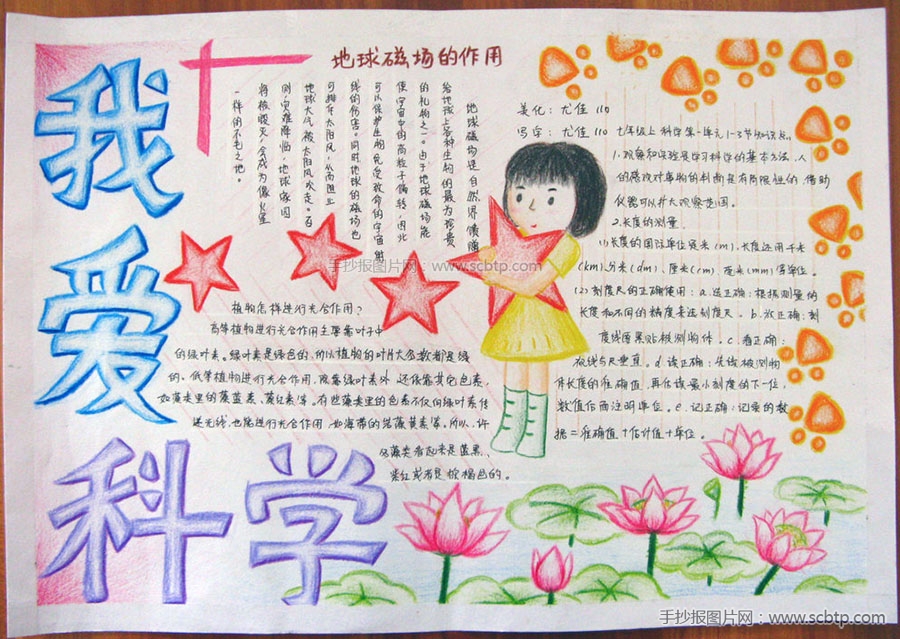 我爱科学
地球磁场的作用
地球磁场是自然界馈赠
给地球上各种生物的最为珍贵
的礼物之一。由于地球磁场能
使宇宙中的高粒子偏转,因此
可以保护生物免受致命的宇宙射
线的伤害。同时地球的磁场也
可抵斥太阳风,从而阻止
地球大气被太阳风吹走。否
则,灾难降临,地球家园
将被毁灭,会成为像火星
一样的不毛之地。
美化:尤佳 110
写字:尤佳 110
七年级上科学第一单元1-3节知识点。
1.观察和实验是学习科学的基本方法,人
的感官对事物的判断是有局限性的,借助
仪器可以扩大观察范围。
2.长度的测量.
(1)长度的国际单位是米(m).长度还用千米
(km).分米(dm).厘米(cm) 毫米(mm)等单位。
(2)刻度尺的正确使用:a.选正确:根据测量的
长度和不同的精度来选刻度尺。b.放正确:刻
度线要紧贴被测物体。c.看正确:
视线与尺垂直。d.读正确:先读被测物
体长度的准确值,再估读最小刻度的下一位,
数值后面注明单位。e.记正确:记录的数
据=准确值+估计值+单位。
植物怎样进行光合作用?
高等植物进行光合作用主要靠叶子中
的绿叶素。绿叶素是绿色的,所以植物的叶片大多数都是绿
的。低等植物进行光合作用,除靠绿叶素外 还依靠其它色素,
如藻类里的藻蓝素、藻红素等。有些藻类里的色素不仅向绿叶素传
递光线,也能进行光合作用,如海带的
藻黄素等。所以,许
多藻类看起来是蓝黑、
紫红或者是棕褐色的。
手抄报图片网:www.scbtp.com
手抄报图片网:www.scbtp.com